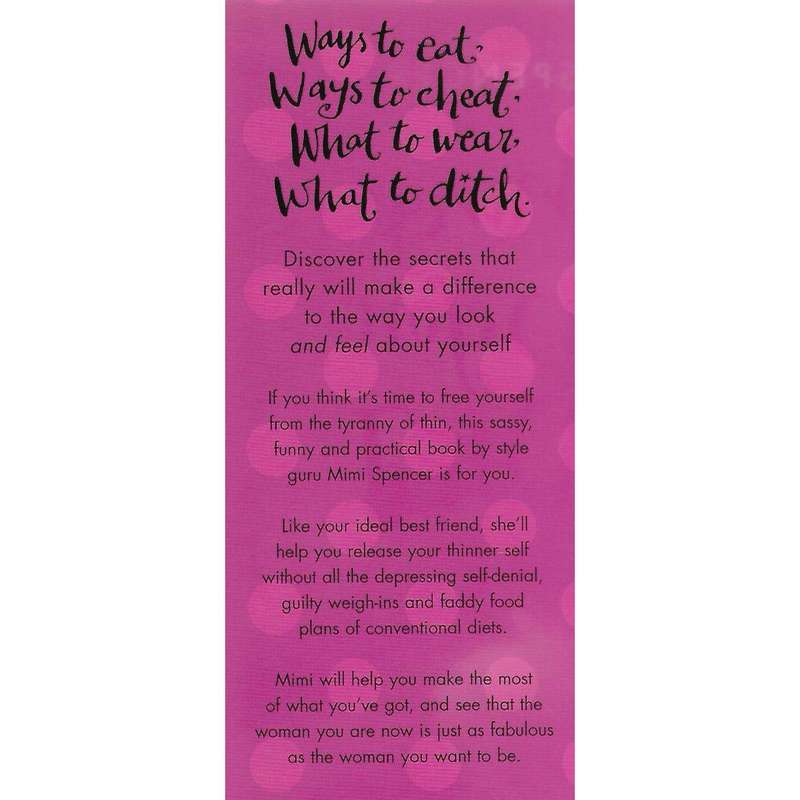 Ways to eat,
Ways to cheat,
What to wear,
What to ditch.
Discover the secrets that
really will make a difference
to the way you look
and feel about yourself
If you think it's time to free yourself
from the tyranny of thin, this sassy,
funny and practical book by style
guru Mimi Spencer is for you.
Like your ideal best friend, she'll
help you release your thinner self
without all the depressing self-denial,
guilty weigh-ins and faddy food
plans of conventional diets.
Mimi will help you make the most
of what you've got, and see that the
woman you are now is just as fabulous
as the woman you want to be.